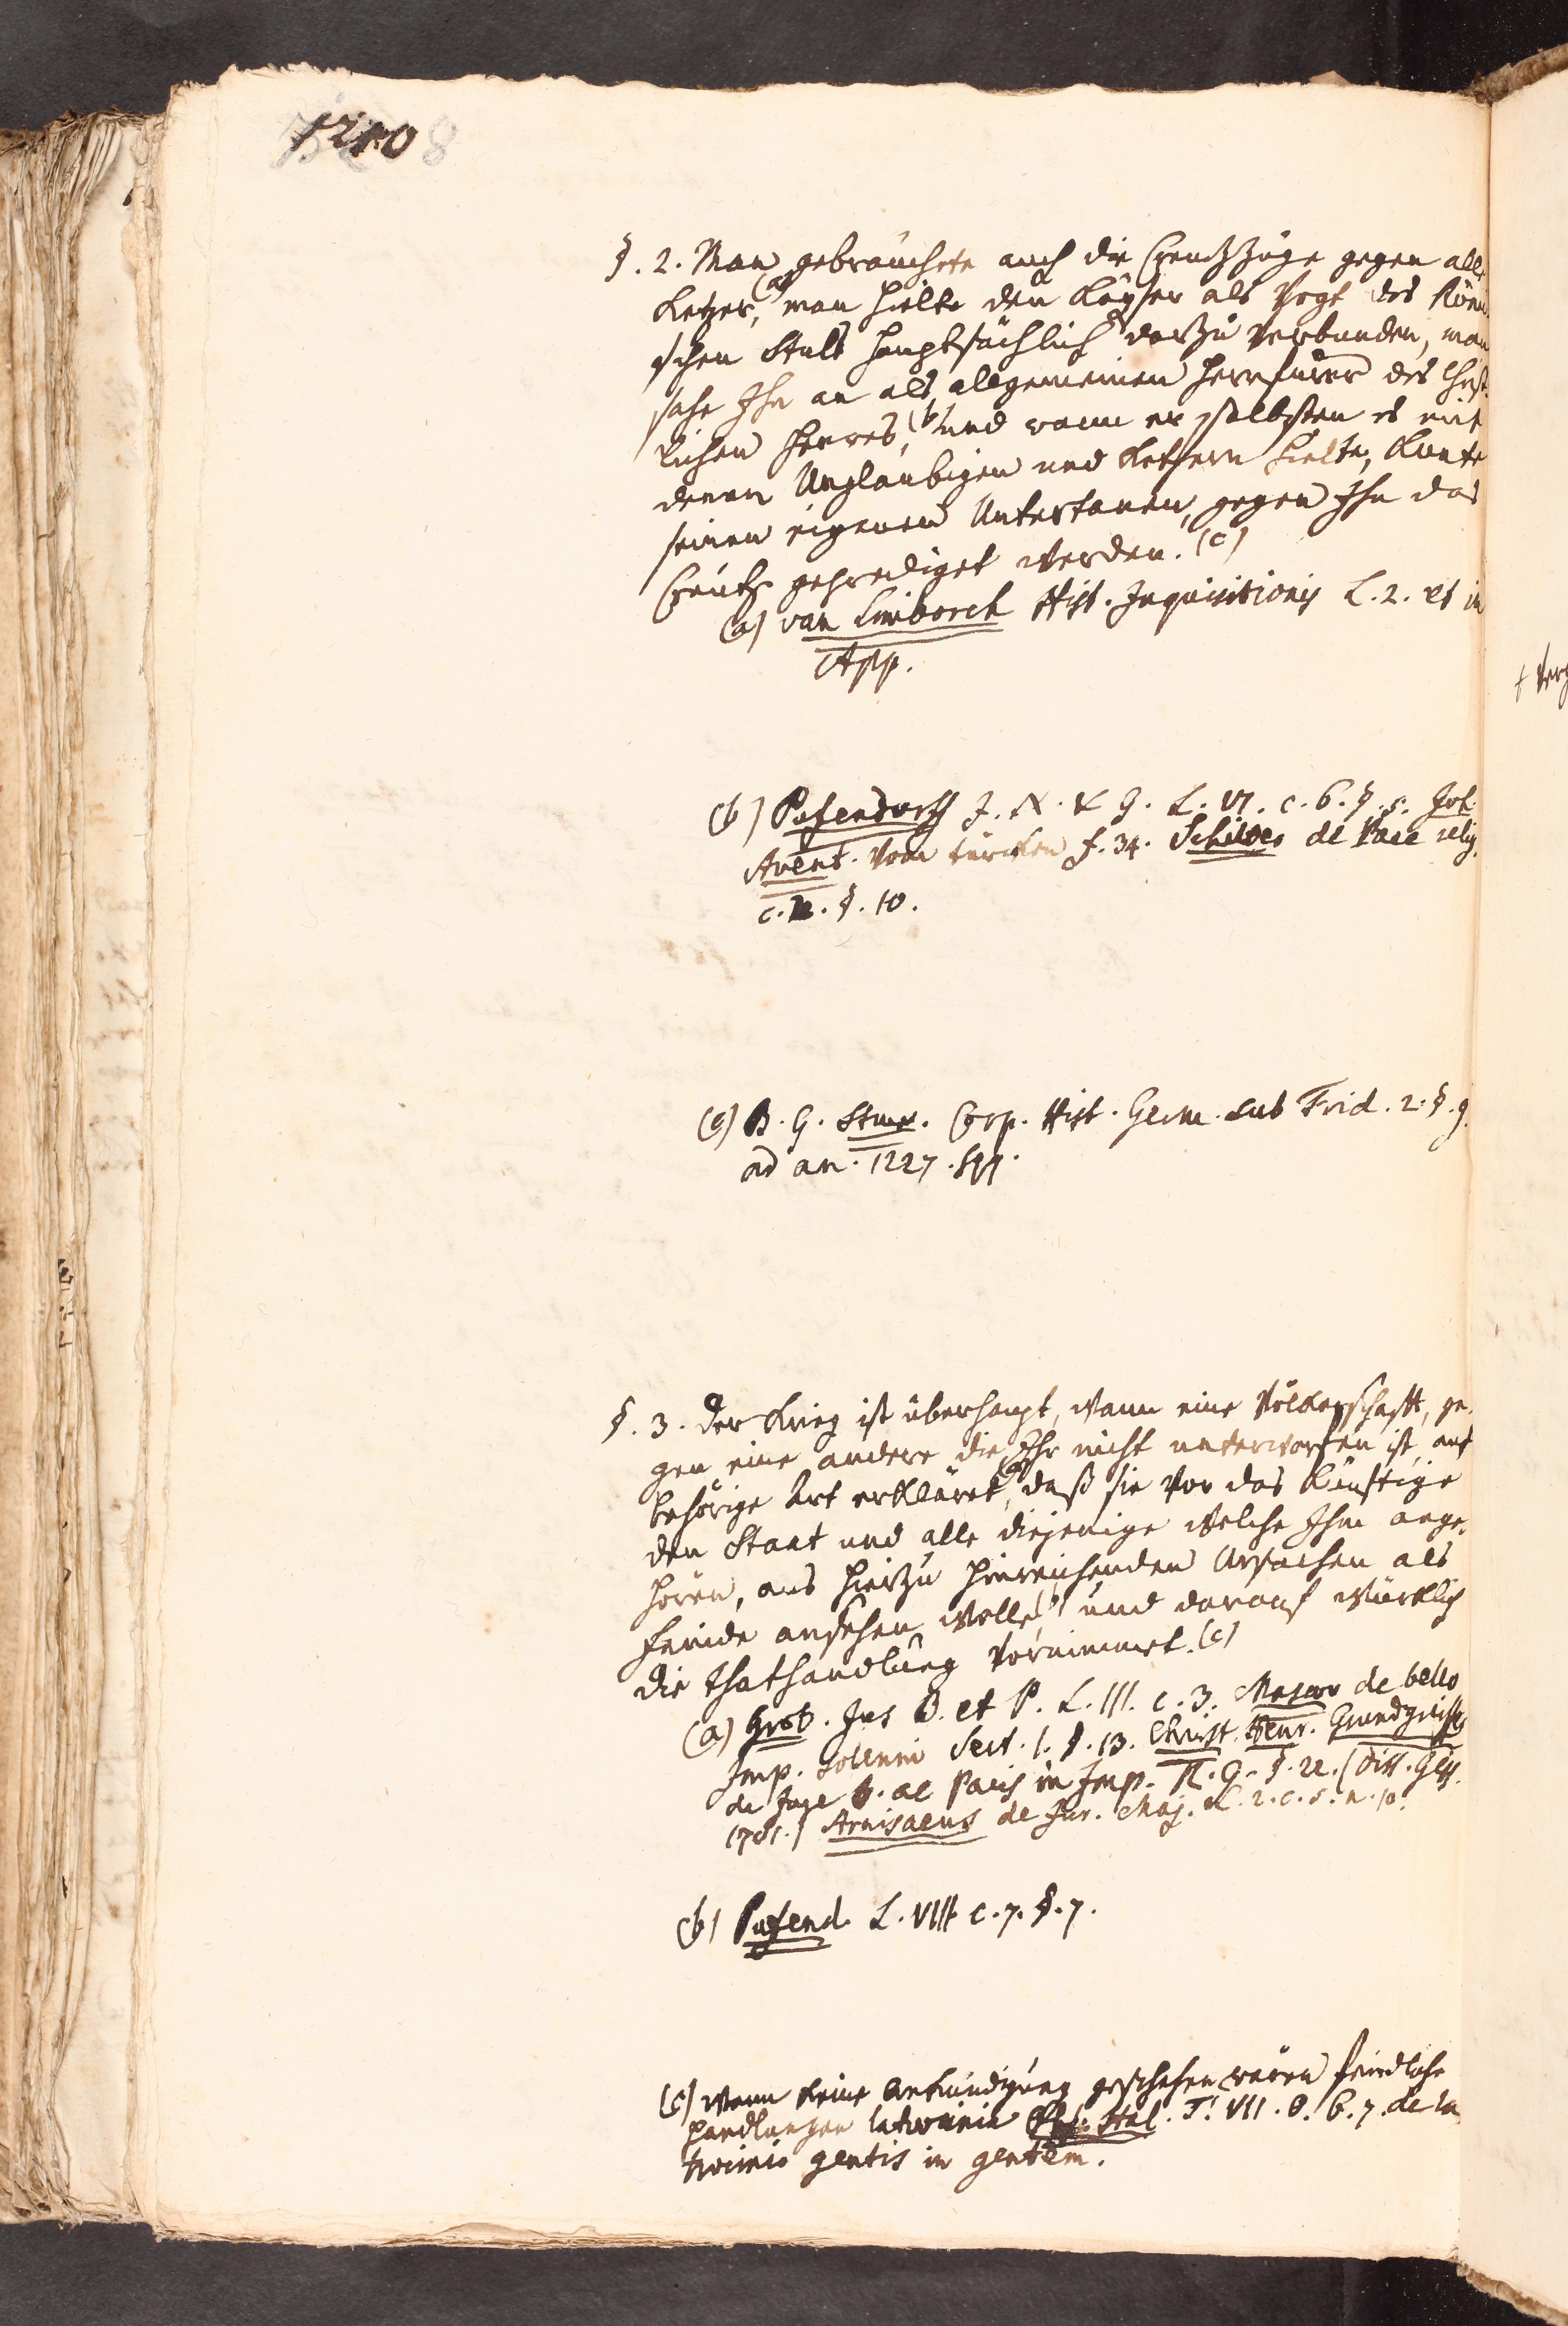 1210
§. 2. Man gebrauchete auch die Creutzzüge gegen alle
Ketzer, (a) man hielte den Käyser als Vogt des Römi
schen Stuls hauptsächlich darzu verbunden, man
sahe Ihn an als allgemeinen Heerfürer des Christ.
lichen Heeres, (b) und wann er selbsten es mit
denen Unglaubigen und Ketzern hielte, konte
seinen eigenen Untertanen, gegen Ihn das
Creutz geprediget werden. (c)
(a) van Limborch Hist. Inquisitionis L. 2. et in
App.
(b) Pufendorff J. N. & G. L. VI. c. 6. §. 5. Joh.
Avent. vom türcken f. 34. Schilder de Pace relig.
c. . §. 10.
(c) B. G. Struv. Corp. Hist. Germ. sub Frid. 2. §. 9.
ad an. 1227. sqq.
§. 3. Der Krieg ist überhaupt, wann eine Völkerschafft, ge-
gen eine andere die Ihr nicht unterworfen ist, auf
behörige Art erkläret, (a) daß sie vor das künftige
den Staat und alle diejenige welche Ihm ange-
hören, aus hierzu hinreichenden Ursachen als
Feinde ansehen wolle, (b) und darauf würklich
die Thathandlung vornimmet. (c)
(a) Grot. Jus B. et P. L. III. c. 3. de bello
Imp. solenni Sect. 1. §. 13. Christ. Henr.
de Jure b. ac Pacis in Imp. R. G. §. 22. (Diss. Giss.
1701.) Arnisaeus de Jur. Maj. L. 2. c. 5. n. 10.
(b) Pufend. L. VIII c. 7. §. 7.
(c) wann keine Ankündigung geschehen wären feindliche
Handlungen latrocinia T. VII. O. 6. 7. de la
trocinio gentis in gentem.
† Verg